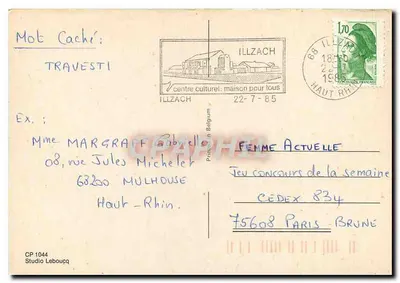 Mot Caché :
TRAVESTI
Ex ;
Mme MARGRAF
08, rue Jules Michelet
68200 MULHOUSE
Haut-Rhin.
CP 1044
Studio Lebouçq
ILLZACH
centre culturel, maison pour tous
ILLZACH 22-7-85
Printed in Belgium
68 ILLZACH
1985
HAUT RHIN
1,70
FEMME ACTUELLE
Jeu concours de la semaine
CEDEX 834
75608 PARIS BRUNE